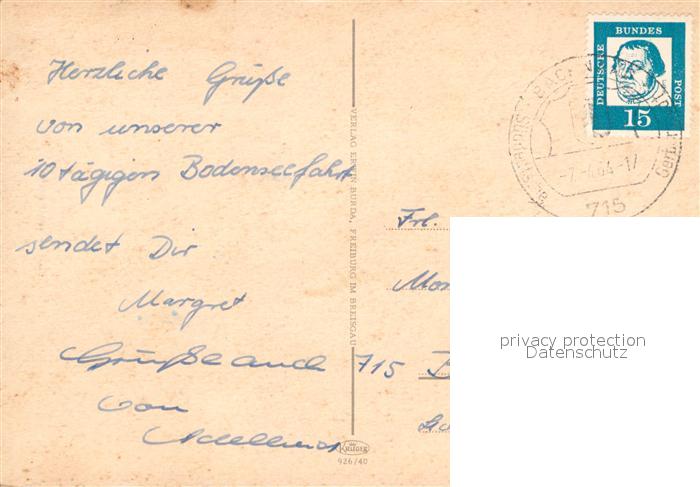 Herzliche Grüße
von unserer
10tägigen Bodenseefahrt
sendet Dir
Margret
Grüße auch
von
VERLAG ERWIN BURDA, FREIBURG IM BREISGAU
KRÜGER
926/40
DEUTSCHE
BUNDES
POST
15
-7.-6.64-17
715
Frl.
715
privacy protection
Datenschutz